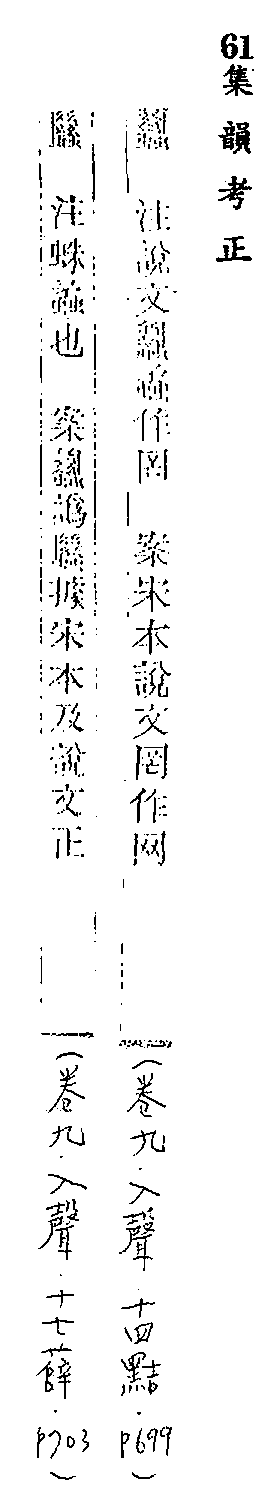 61集韻考正
蠿 注說文蠿蟊作罔 案宋本說文罔作网 (卷九·入聲·十四黠·p699)
注蛛蟊也 案蠿譌據宋本及說文正 (卷九·入聲·十七薛·p703)